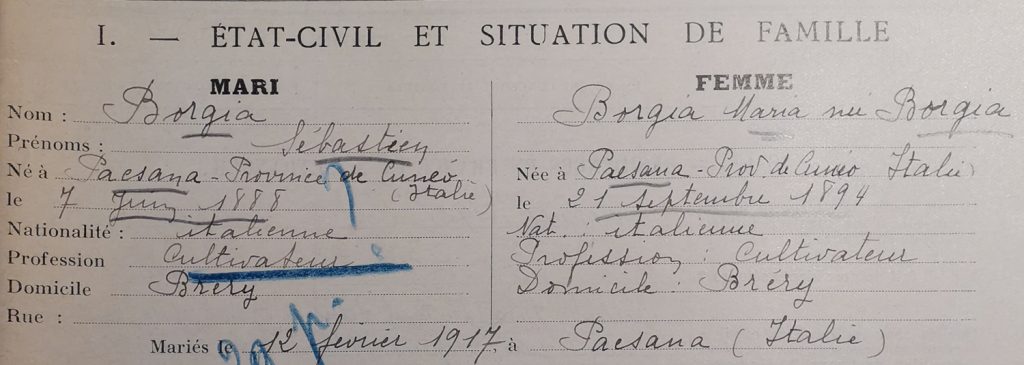 I. — ÉTAT-CIVIL ET SITUATION DE FAMILLE
MARI
Nom : Borgia
Prénoms : Sébastien
Né à Paesana - Province de Cunéo
(Italie)
le 7 Juin 1888
Nationalité : italienne
Profession Cultivateur
Domicile Bréry
Rue :
FEMME
Borgia Maria née Borgia
Née à Paesana - Prov. de Cunéo Italie
le 21 septembre 1894
Nat. : italienne
Profession : Cultivateur
Domicile : Bréry
Mariés le 12 février 1917, à Paesana (Italie)